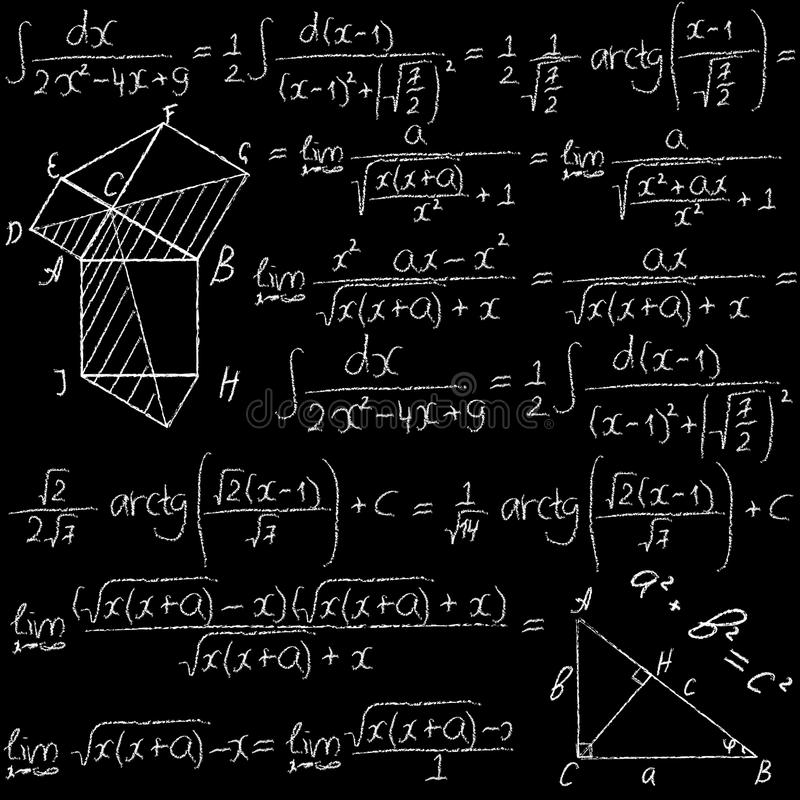 ∫ dx/(2x²-4x+9) = 1/2 ∫ d(x-1)/((x-1)²+(√(7/2))²) = 1/2 1/√(7/2) arctg((x-1)/√(7/2)) =
F
E C G
D
A B
J H
= lim a/(√(x(x+a)/x²)+1) = lim a/(√((x²+ax)/x²)+1)
lim x→∞ (x² ax-x²)/(√(x(x+a))+x) = ax/(√(x(x+a))+x) =
∫ dx/(2x²-4x+9) = 1/2 ∫ d(x-1)/((x-1)²+(√(7/2))²)
dreamstime.com
√2/(2√7) arctg(√2(x-1)/√7) + C = 1/√14 arctg(√2(x-1)/√7) + C
lim x→∞ (√(x(x+a))-x)(√(x(x+a))+x)/(√(x(x+a))+x) =
a² + b² = c²
A
H
b c
φ
C a B
lim x→∞ √(x(x+a))-x = lim x→∞ (√(x(x+a))-x)/1